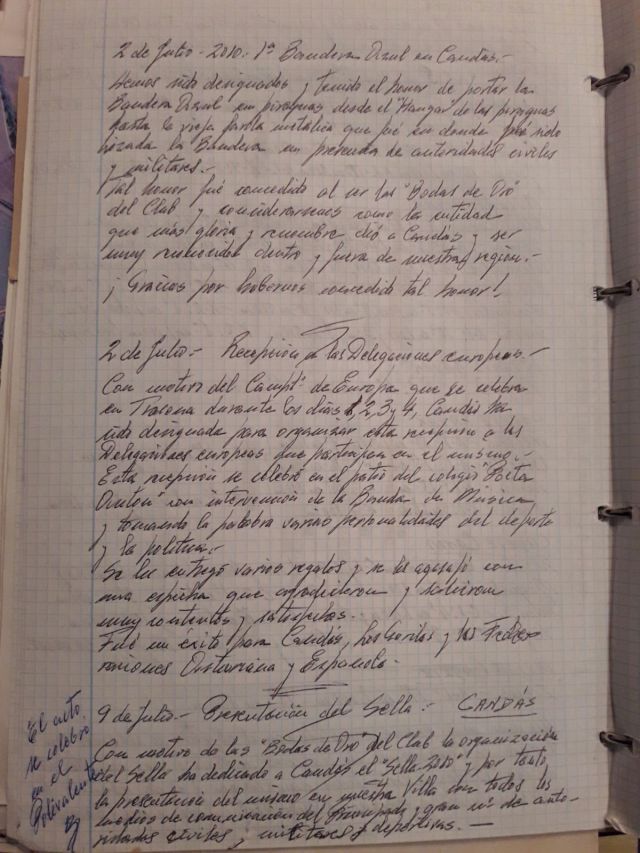 2 de Julio - 2010 - 1ª Bandera Azul en Candás.-
Hemos sido designados y tenido el honor de portar la
Bandera Azul en piraguas desde el "Hangar" de las piraguas
hasta la vieja farola metálica que fué en donde fué sido
izada la Bandera en presencia de autoridades civiles
y militares.-
Tal honor fué concedido al ser las "Bodas de Oro"
del Club y considerarnos como la entidad
que más gloria y renombre dió a Candás y ser
muy reconocidos dentro y fuera de nuestra región.-
¡Gracias por habernos concedido tal honor!
2 de Julio.- Recepción a las Delegaciones europeas.-
Con motivo del Campt.º de Europa que se celebra
en Trasona durante los días 1, 2, 3 y 4, Candás ha
sido designada para organizar esta recepción a las
Delegaciones europeas que participan en el mismo.-
Esta recepción se celebró en el patio del colegio "Poeta
Antón" con intervención de la Banda de Música
y tomando la palabra varias personalidades del deporte
y la política.-
Se les entregó varios regalos y se les agasajó con
una espicha que agradecieron y salieron
muy contentos y satisfechos.-
Fué un éxito para Candás, Los Gorilas y las Fede-
raciones Asturiana y Española.-
9 de Julio.- Presentación del Sella.- CANDÁS
Con motivo de las "Bodas de Oro" del Club la organización
del Sella ha dedicado a Candás el "Sella 2010" y por tanto
la presentación del mismo en nuestra Villa con todos los
medios de comunicación del Principado y gran nº de auto-
ridades civiles, militares y deportivas.-
El acto
se celebró
en el
Polivalente